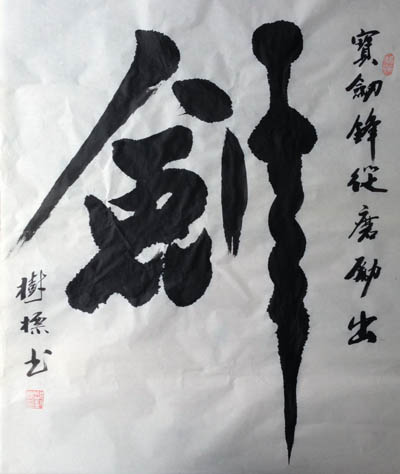 寶劍鋒從磨勵出
劍
樹標书